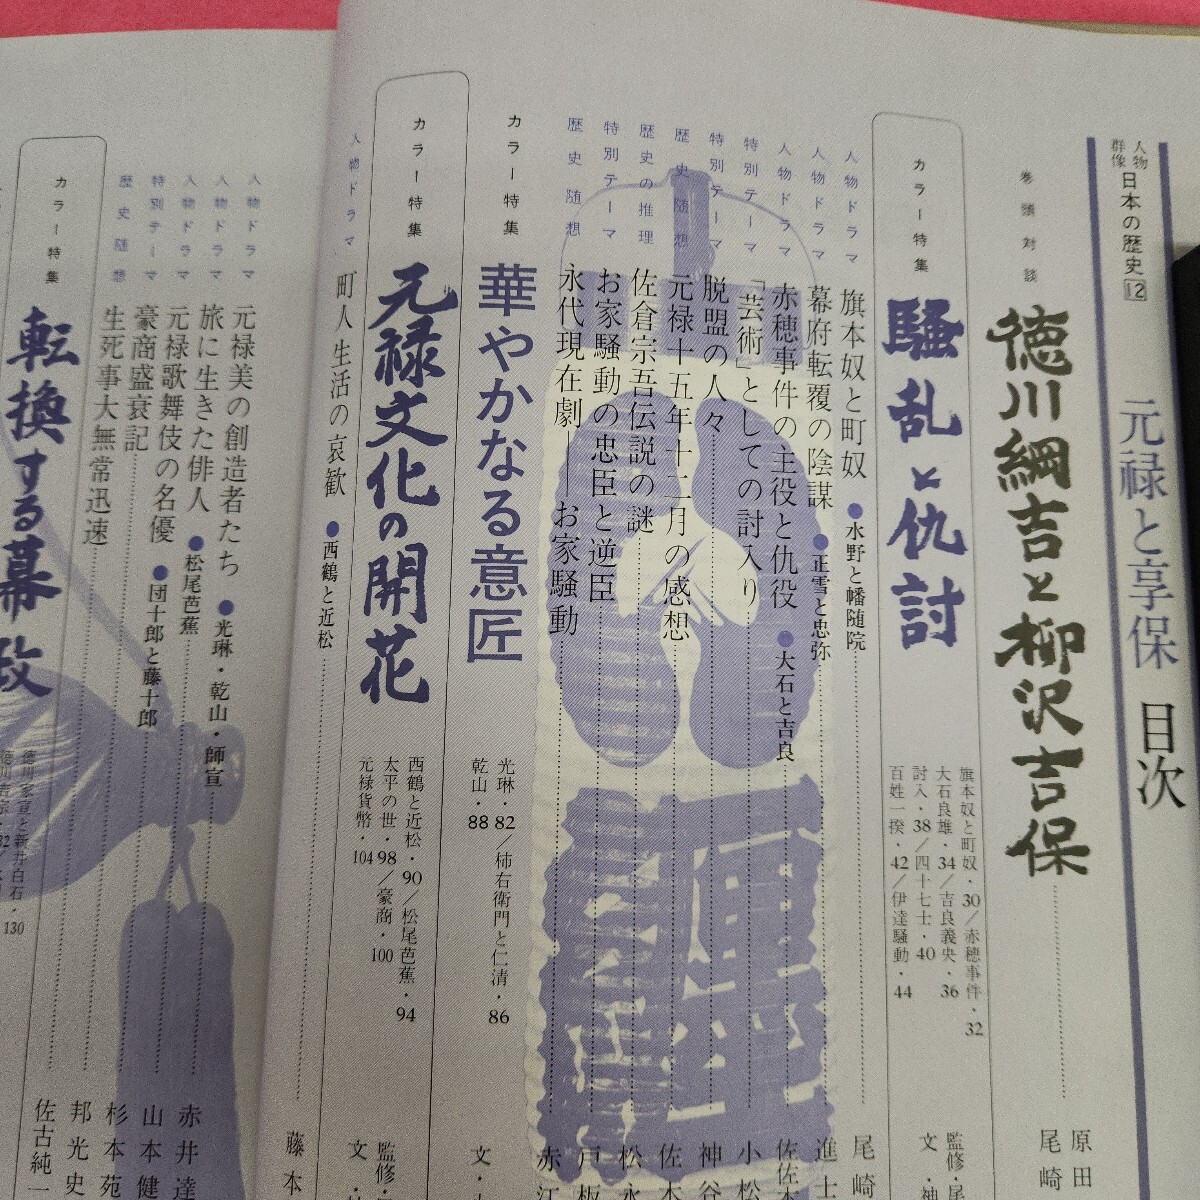 人物群像 日本の歴史 12
元禄と享保 目次
巻頭対談
徳川綱吉と柳沢吉保
原田
尾崎
カラー特集
騒乱と仇討
旗本奴と町奴・30／赤穂事件・32
大石良雄・34／吉良義央・36
討入・38／四十七士・40
百姓一揆・42／伊達騒動・44
監修・尾
文・神
人物ドラマ 旗本奴と町奴 ●水野と幡随院
尾崎
人物ドラマ 幕府転覆の陰謀 ●正雪と忠弥
進士
人物ドラマ 赤穂事件の主役と仇役 ●大石と吉良
佐佐木
特別テーマ 「芸術」としての討入り
小松
特別テーマ 脱盟の人々
神谷
歴史随想 元禄十五年十二月の感想
佐木
歴史の推理 佐倉宗吾伝説の謎
松永
特別テーマ お家騒動の忠臣と逆臣
戸板
歴史随想 永代現在劇――お家騒動
赤江
カラー特集
華やかなる意匠
光琳・82／柿右衛門と仁清・86
乾山・88
文・
カラー特集
元禄文化の開花
西鶴と近松・90／松尾芭蕉・94
太平の世・98／豪商・100
元禄貨幣・104
監修・
文・
人物ドラマ 町人生活の哀歓 ●西鶴と近松
藤本
人物ドラマ 元禄美の創造者たち ●光琳・乾山・師宣
赤井達
人物ドラマ 旅に生きた俳人 ●松尾芭蕉
山本健
人物ドラマ 元禄歌舞伎の名優 ●団十郎と藤十郎
杉本苑
特別テーマ 豪商盛衰記
邦光史
歴史随想 生死事大無常迅速
佐古純一
カラー特集
転換する幕政
徳川家宣と新井白石・130